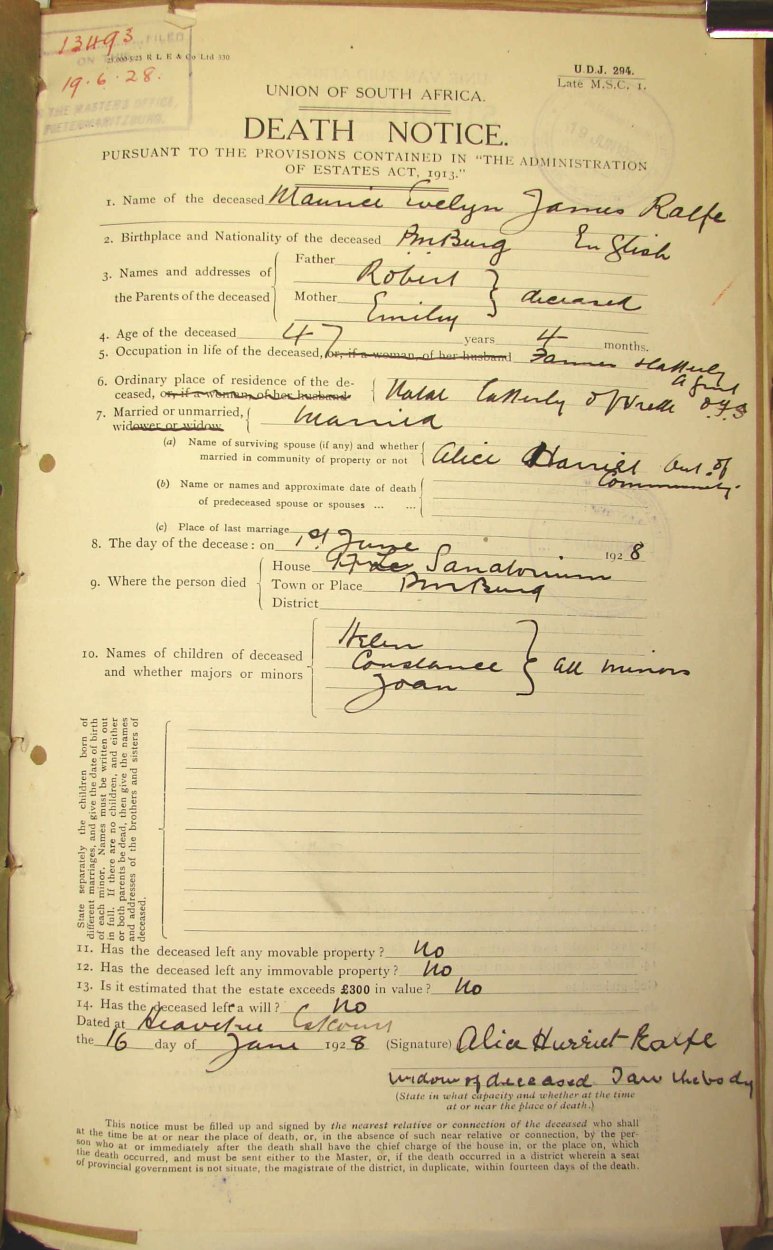 13493
FILED
ON
19.6.28.
THE MASTER'S OFFICE,
PIETERMARITZBURG.
R L E & Co Ltd 330
U.D.J. 294.
Late M.S.C. 1.
UNION OF SOUTH AFRICA.
DEATH NOTICE.
PURSUANT TO THE PROVISIONS CONTAINED IN "THE ADMINISTRATION
OF ESTATES ACT, 1913."
1. Name of the deceased Maurice Evelyn James Ralfe
2. Birthplace and Nationality of the deceased PmBurg English
3. Names and addresses of the Parents of the deceased
Father Robert
Mother Emily
deceased
4. Age of the deceased 47 years 4 months.
5. Occupation in life of the deceased, or, if a woman, of her husband Farmer & latterly Agent
6. Ordinary place of residence of the deceased, or, if a woman, of her husband Natal latterly of Vrede O.F.S
7. Married or unmarried, widower or widow Married
(a) Name of surviving spouse (if any) and whether married in community of property or not Alice Harriet Out of Community.
(b) Name or names and approximate date of death of predeceased spouse or spouses ... ...
(c) Place of last marriage
8. The day of the decease: on 1st June 1928
9. Where the person died
House Sanatorium
Town or Place PmBurg
District
10. Names of children of deceased and whether majors or minors
Helen
Constance
Joan
all minors
State separately the children born of
different marriages, and give the date of birth
of each minor. Names must be written out
in full. If there are no children, and either
or both parents be dead, then give the names
and addresses of the brothers and sisters of
deceased.
11. Has the deceased left any movable property? No
12. Has the deceased left any immovable property? No
13. Is it estimated that the estate exceeds £300 in value? No
14. Has the deceased left a will? No
Dated at Heavitree Estcourt
the 16 day of June 1928 (Signature) Alice Harriet Ralfe
widow of deceased I saw the body
(State in what capacity and whether at the time
at or near the place of death.)
This notice must be filled up and signed by the nearest relative or connection of the deceased who shall
at the time be at or near the place of death, or, in the absence of such near relative or connection, by the per-
son who at or immediately after the death shall have the chief charge of the house in, or the place on, which
the death occurred, and must be sent either to the Master, or, if the death occurred in a district wherein a seat
of provincial government is not situate, the magistrate of the district, in duplicate, within fourteen days of the death.